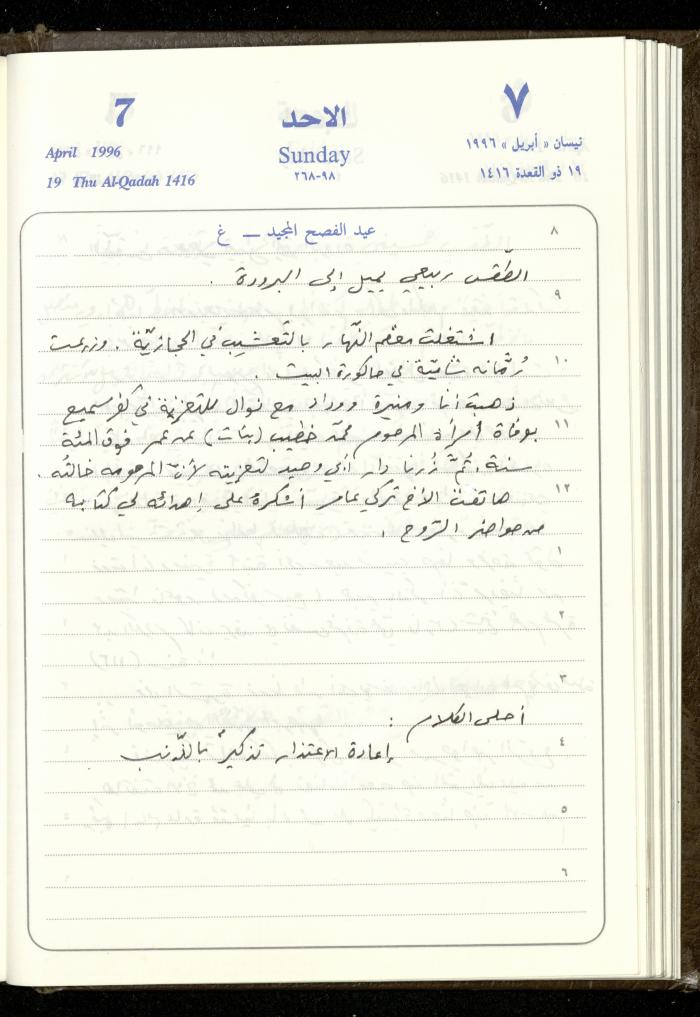 7
الاحد
٧
April 1996
Sunday
نيسان « أبريل » ١٩٩٦
19 Thu Al-Qadah 1416
٩٨-٢٦٨
١٩ ذو القعدة ١٤١٦
عيد الفصح المجيد — غ
٨
الطّقس ربيعي يميل إلى البرودة .
٩
اشتغلت معظم النّهار بالتّعشيب في الحجازيّة . وزرعت
١٠
رُمّانه شاميّة في حاكورة البيت .
ذهبت أنا ومنيرة ووداد مع نوال للتعزية في كفر سميع
١١
بوفاة امرأة المرحوم محمّد خطيب (بنات) عن عمر فوق المئة
سنة . ثُمَّ زُرنا دار أبي وحيد لتعزيته لأنّ المرحومه خالتُه .
١٢
هاتفت الأخ تركي عامر أشكرهُ على إهدائه لي كتابه
من حواضر الرّوح .
١
٢
٣
أحلى الكلام :
٤
إعادة الاعتذار تذكيرٌ بالذّنب
٥
٦